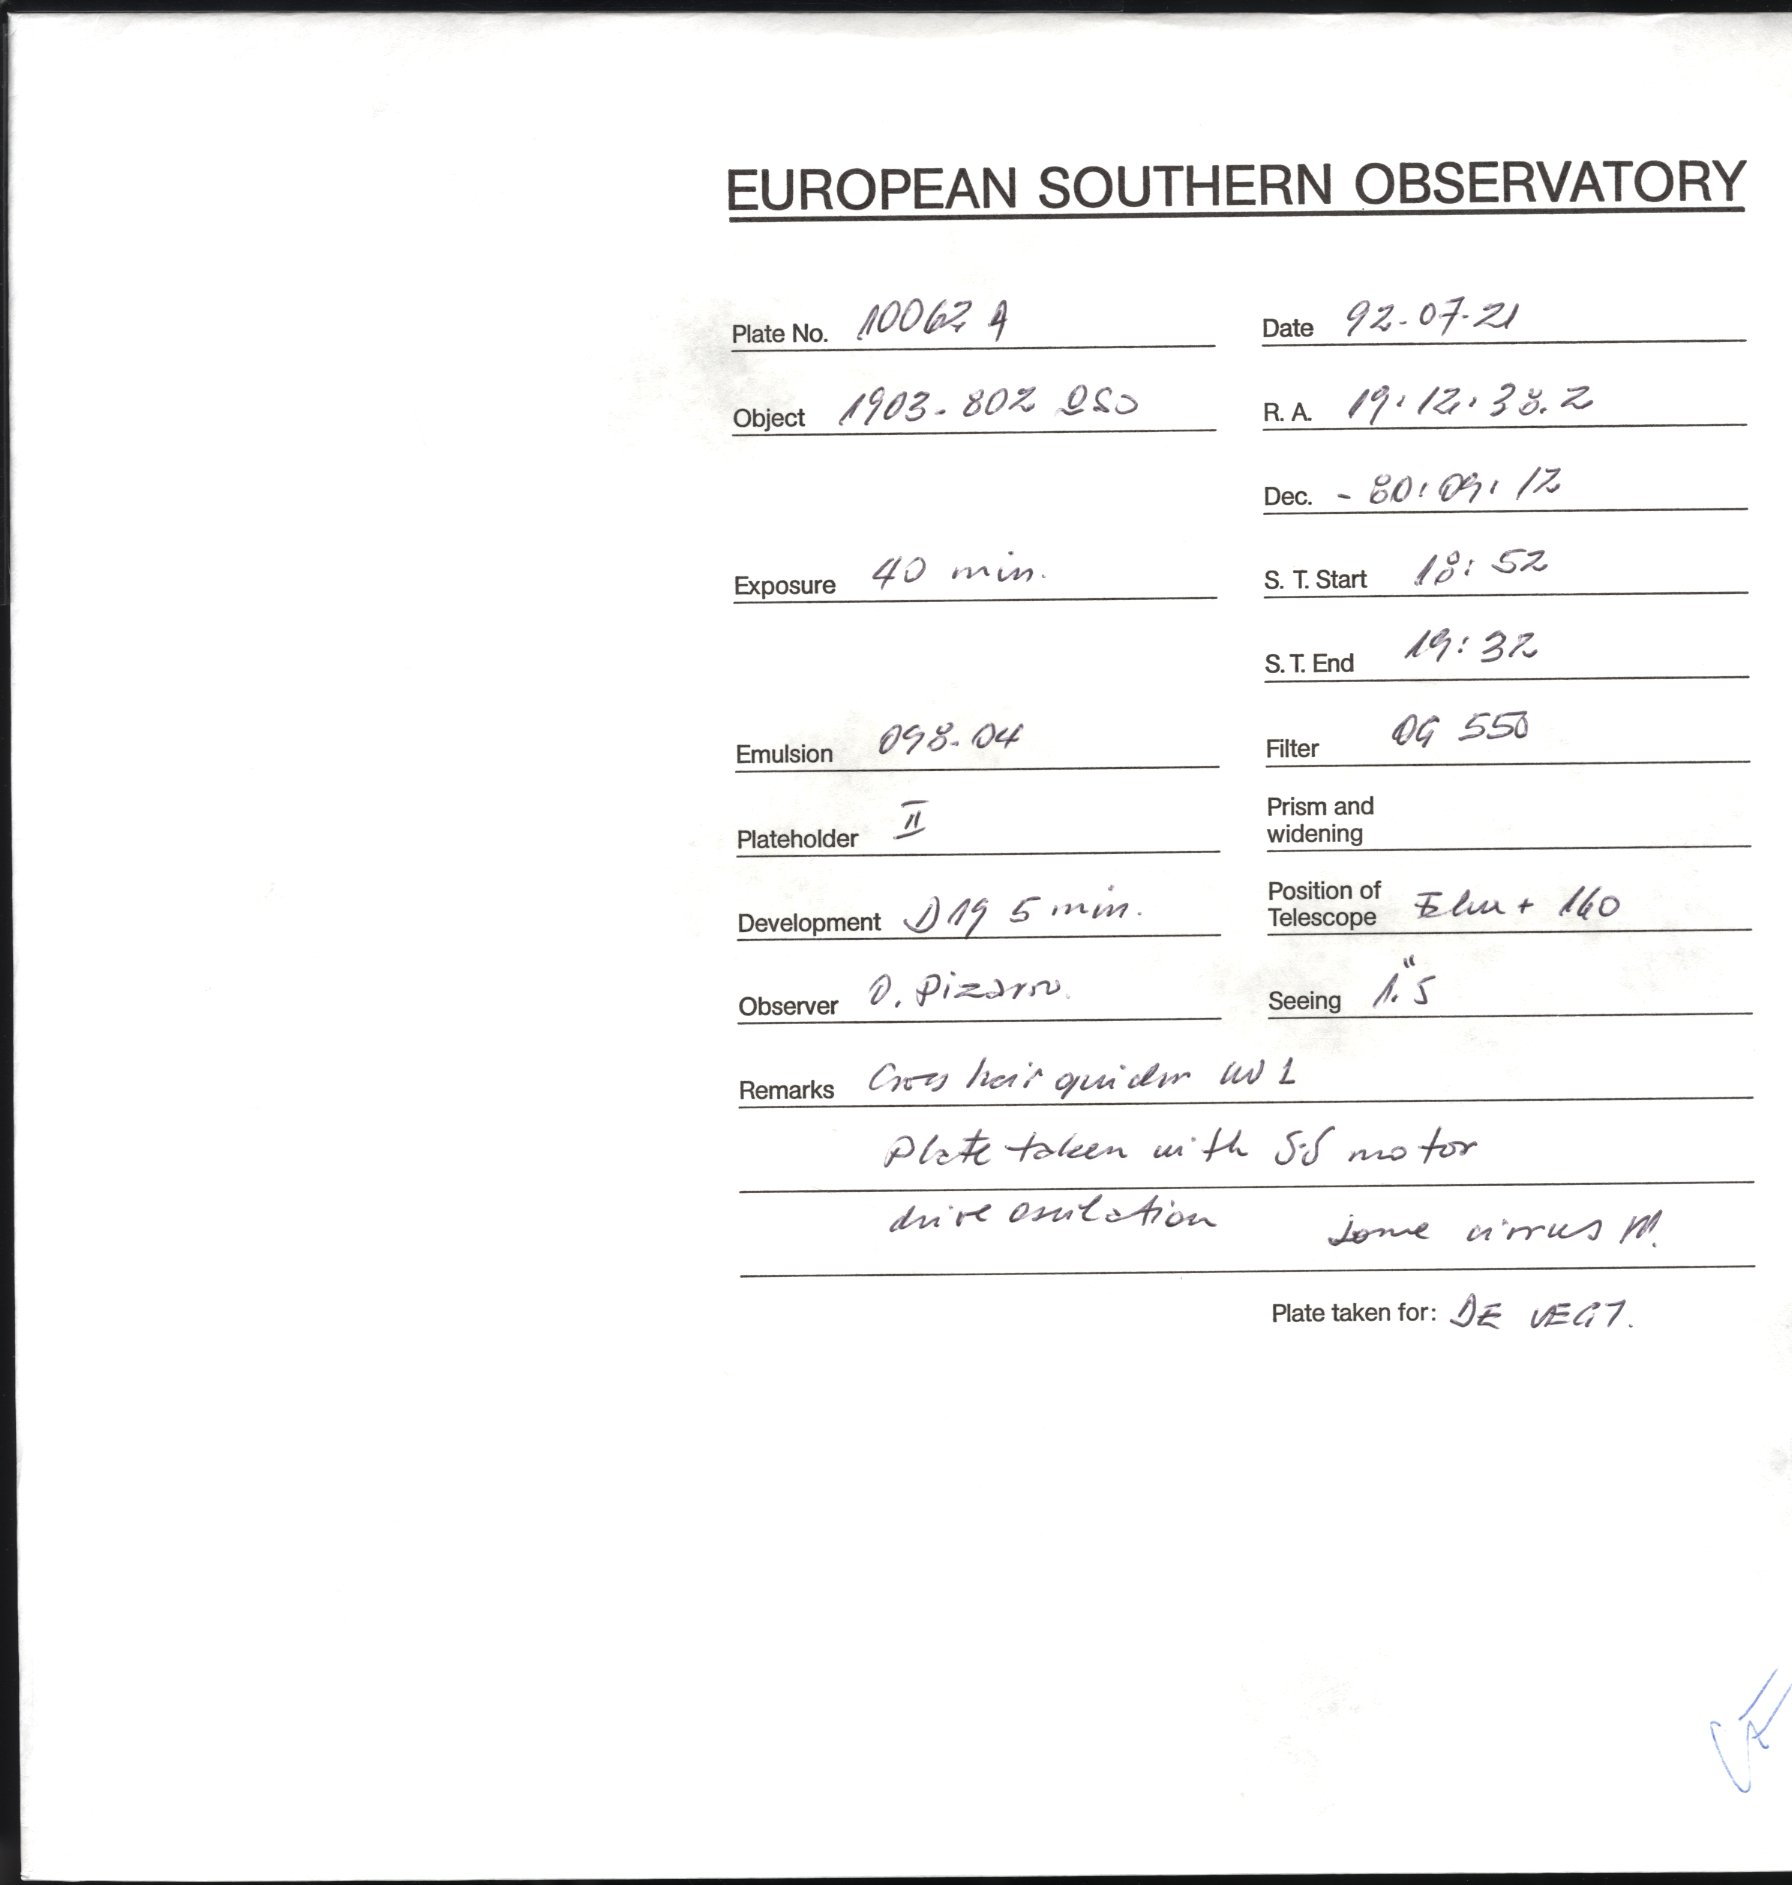 EUROPEAN SOUTHERN OBSERVATORY
Plate No. 10062 A Date 92-07-21
Object 1903-802 QSO R. A. 19:12:38.2
Dec. -80:09:12
Exposure 40 min. S. T. Start 18:52
S. T. End 19:32
Emulsion 098-04 Filter OG 550
Plateholder II Prism and widening
Development D19 5 min. Position of Telescope + 160
Observer O. Pizarro Seeing 1."5
Remarks Cross hair guider
Plate taken with motor
drive oscilation some cirrus
Plate taken for: DE VEGT.